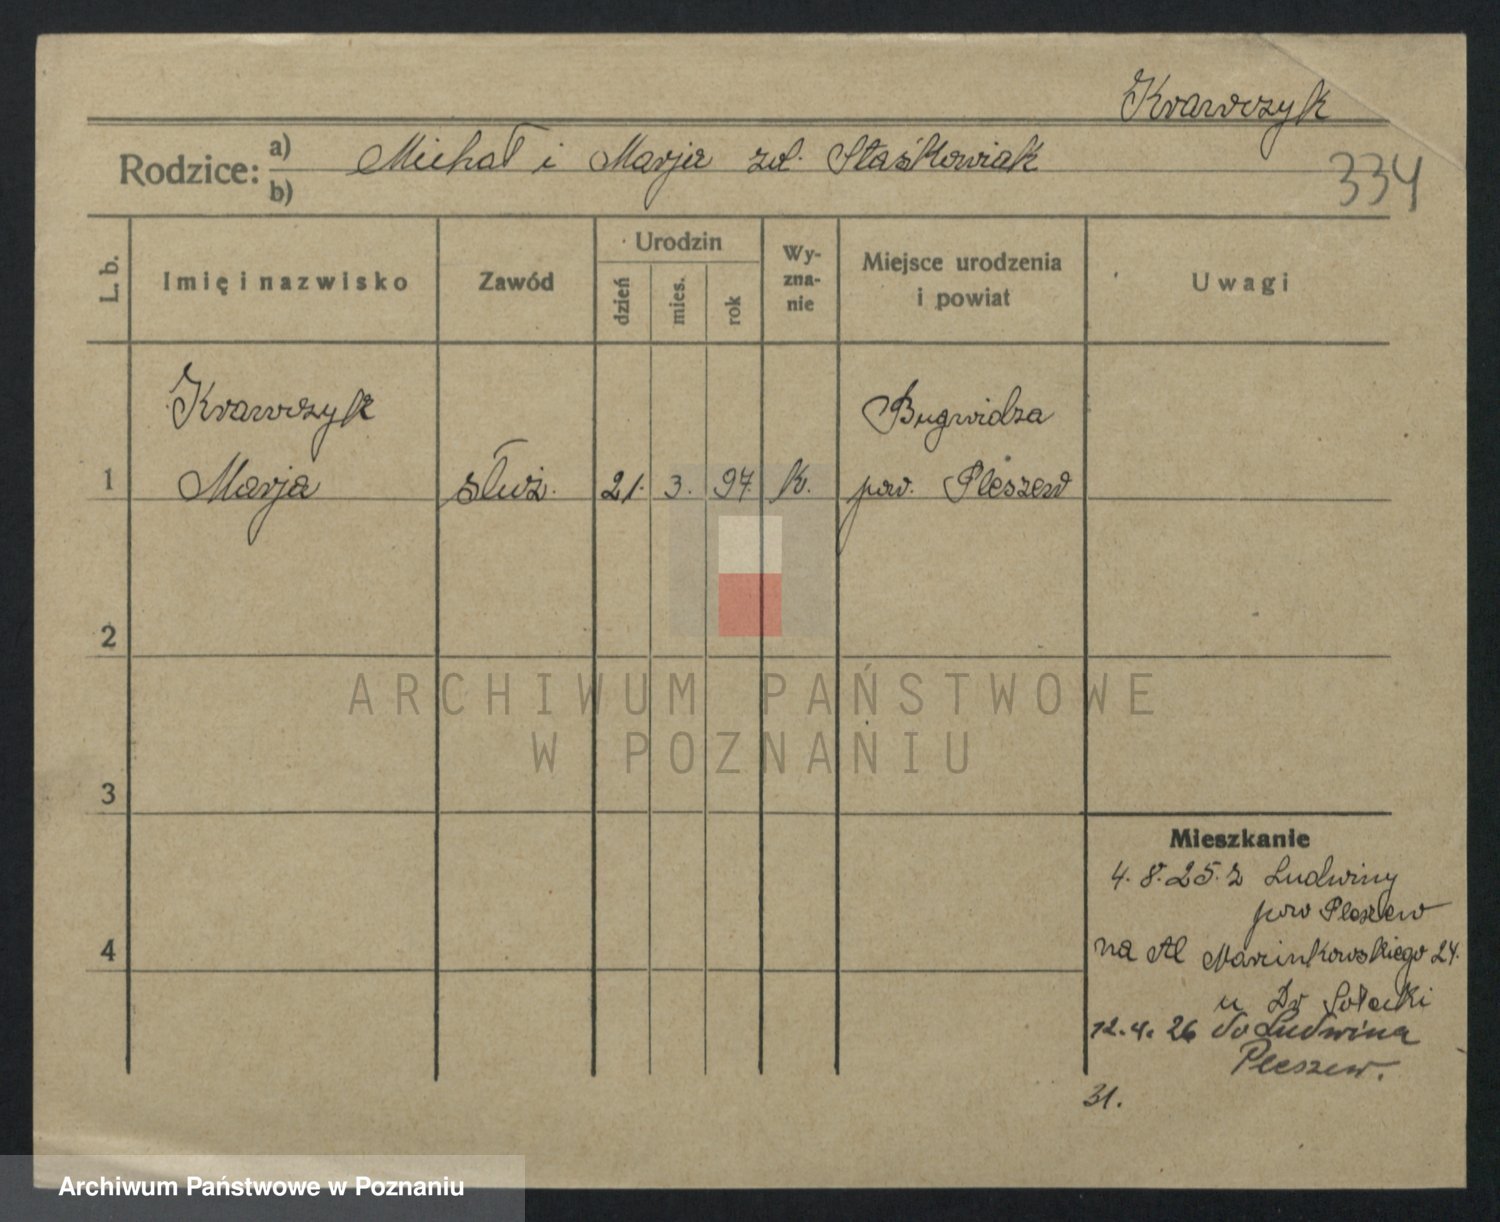 Krawczyk
Rodzice: a) Michał i Marja zd. Staśkowiak
b)
334
L. b.
Imię i nazwisko
Zawód
Urodzin
dzień
mies.
rok
Wy-
zna-
nie
Miejsce urodzenia
i powiat
Uwagi
Krawczyk
Bugwidza
1 Marja służ. 21. 3. 97. k. pow. Pleszew
2
ARCHIWUM PAŃSTWOWE
W POZNANIU
3
Mieszkanie
4. 8. 25. z Ludwiny
pow Pleszew
4
na Al Marcinkowskiego 24.
u Dr
12. 4. 26 do Ludwina
Pleszew.
31.
Archiwum Państwowe w Poznaniu